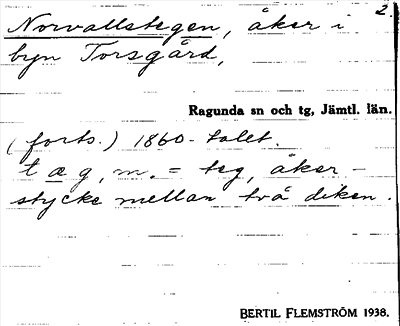 2.
Norvallstegen, åker i
byn Torsgård,
Ragunda sn och tg, Jämtl. län.
(forts.) 1860-talet.
tæg, m. = teg, åker-
stycke mellan två diken.
BERTIL FLEMSTRÖM 1938.